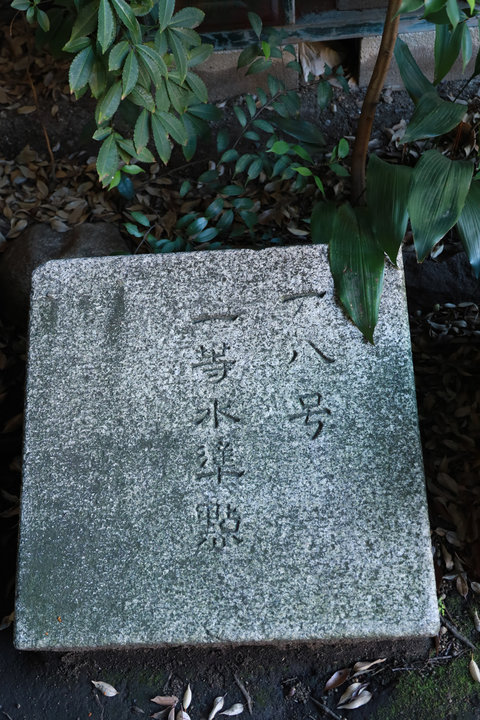 一八号
一等水準點